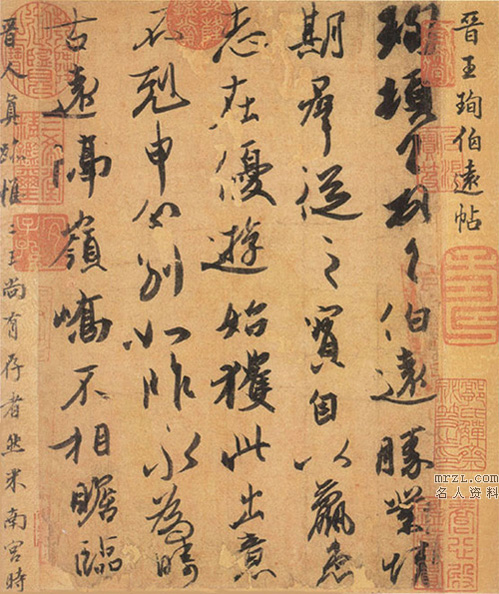 晉王珣伯遠帖
珣頓首頓首伯遠勝業情
期羣從之寶自以羸患
志在優遊始獲此出意
不剋申分別如昨永為疇
古遠隔嶺嶠不相瞻臨
晉人真跡惟二王尚有存者然米南宮時
mrzl.com
名人资料